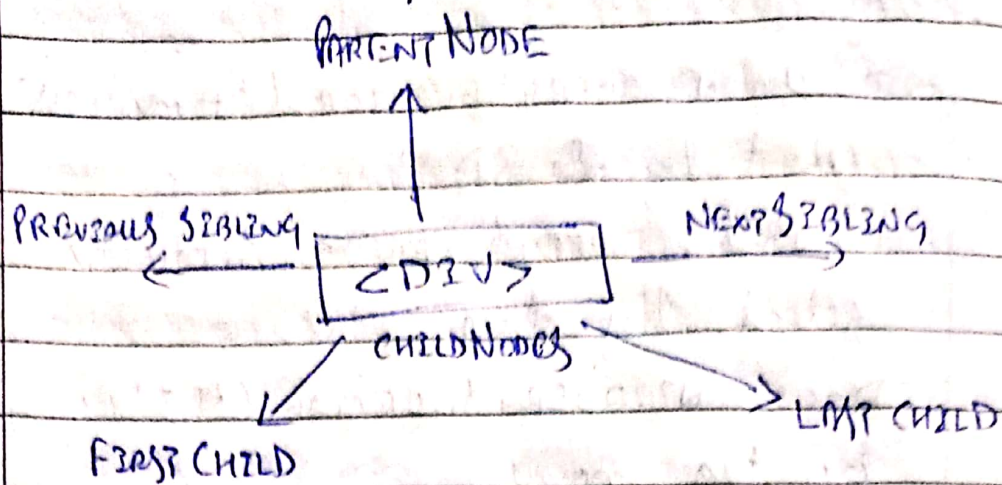 PARENT NODE
PREVIOUS SIBLING
NEXT SIBLING
<DIV>
CHILDNODES
FIRST CHILD
LAST CHILD